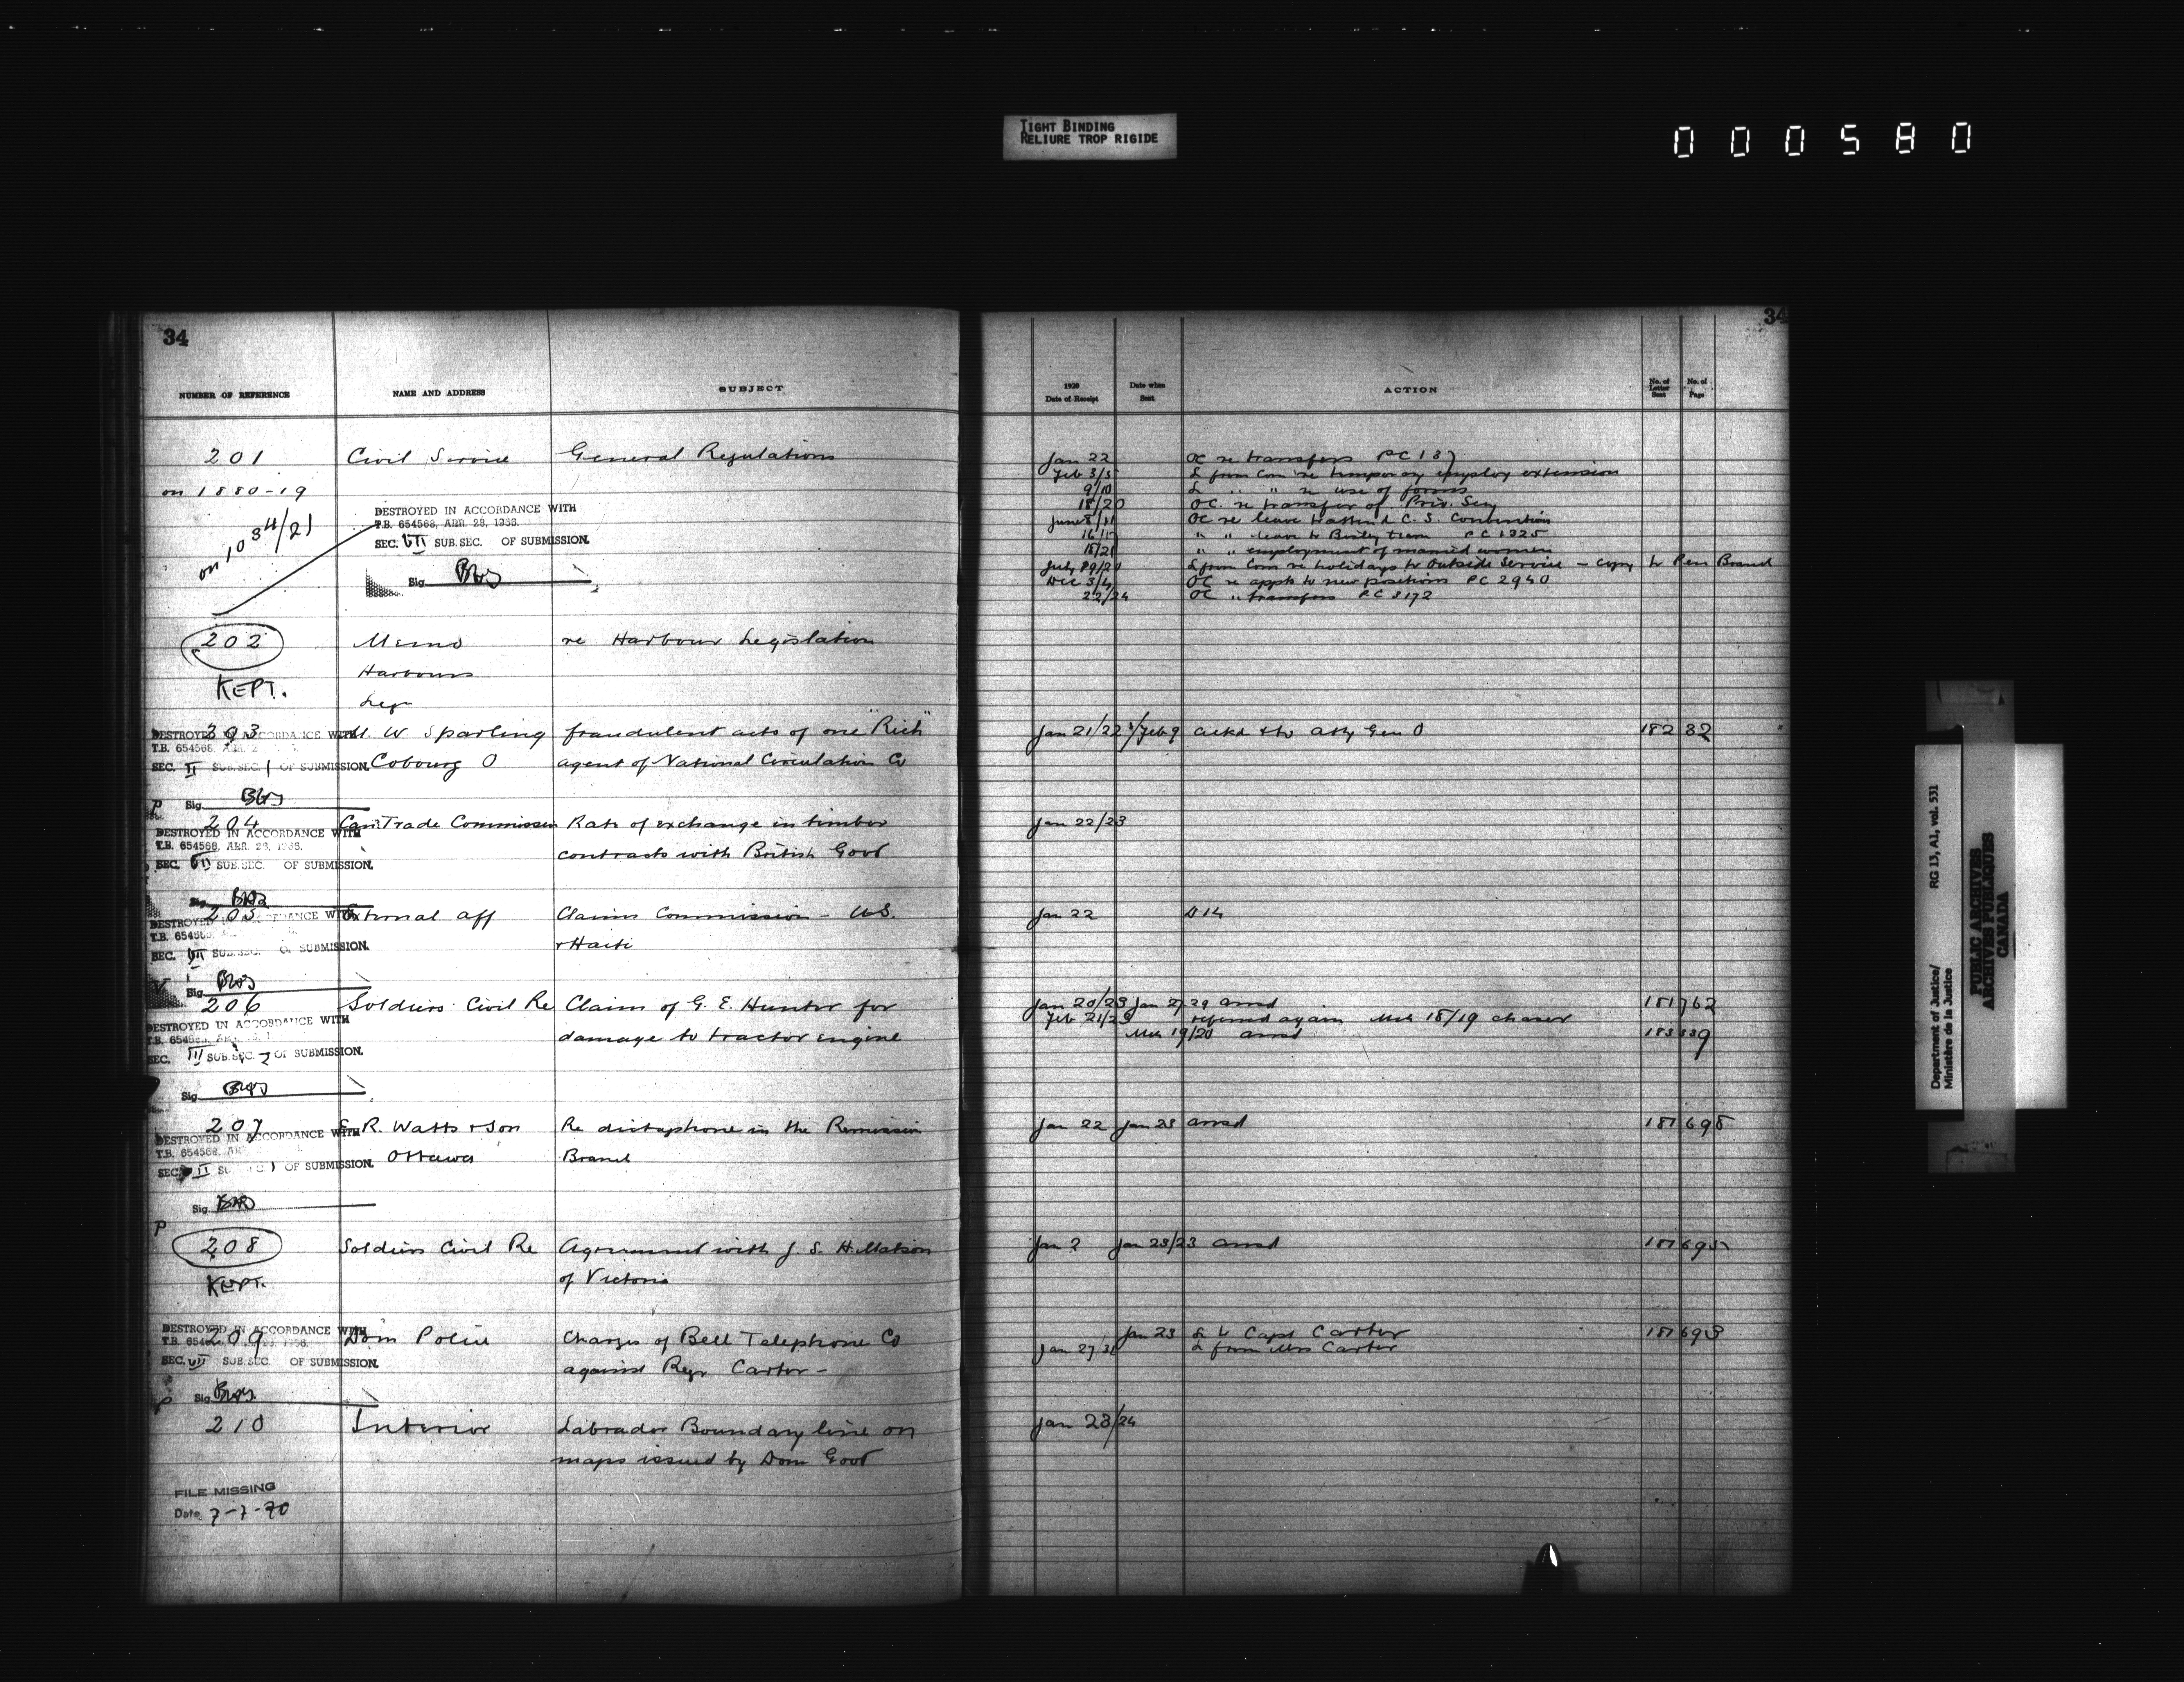 TIGHT BINDING
RELIURE TROP RIGIDE
000580
34
NUMBER OF REFERENCE NAME AND ADDRESS SUBJECT
201 Civil Service General Regulations
on 1880-19
on 1034/21
DESTROYED IN ACCORDANCE WITH
T.B. 654568, APR. 28, 1936.
SEC. VII SUB.SEC. OF SUBMISSION.
Sig.
202 Memo re Harbour Legislation
KEPT. Harbours
Legn
203 W. Sparling fraudulent acts of one "Rich"
DESTROYED IN ACCORDANCE WITH
T.B. 654568,
SEC. II SUB.SEC. 1 OF SUBMISSION. Cobourg O agent of National Circulation Co
Sig.
204 Can Trade Commission Rate of exchange in timber
DESTROYED IN ACCORDANCE WITH
T.B. 654568, APR. 28, 1936. contracts with British Govt
SEC. VII SUB.SEC. OF SUBMISSION.
Sig.
205 External Aff Claims Commission - U.S.
DESTROYED IN ACCORDANCE WITH
T.B. 654568
SEC. VII SUB.SEC. OF SUBMISSION. + Haiti
Sig.
206 Soldiers Civil Re Claim of G. E. Hunter for
DESTROYED IN ACCORDANCE WITH
T.B. 654568 damage to tractor engine
SEC. III SUB.SEC. 2 OF SUBMISSION.
Sig.
207 R. Watts & Son Re dictaphone in the Remission
DESTROYED IN ACCORDANCE WITH
T.B. 654568, APR.
SEC. II SUB.SEC. 1 OF SUBMISSION. Ottawa Branch
Sig.
P
208 Soldiers Civil Re Agreement with J. S. H. Matson
KEPT. of Victoria
209 Dom Police Charges of Bell Telephone Co
DESTROYED IN ACCORDANCE WITH
T.B. 654568
SEC. VII SUB.SEC. OF SUBMISSION. against Regr Carter -
Sig.
210 Interior Labrador Boundary line on
maps issued by Dom Govt
FILE MISSING
Date 7-7-70
34
1920
Date of Receipt Date when Sent ACTION No. of Letter Sent No. of Page
Jan 22 OC re transfers PC 137
Feb 3/5 L from Com re temporary employ extension
9/10 L " " re use of forms
18/20 OC. re transfer of Priv. Secy
June 8/11 OC re leave to attend C. S. Convention
" " leave to Bisley team PC 1325
18/21 " " employment of married women
July L from Com re holidays to Outside Service - copy to Pen Branch
Dec 3/4 OC re appts to new positions PC 2940
22/24 OC " transfers PC 3172
Jan 21/22 Feb 9 ackd & to Atty Gen O 182 32
Jan 22/23
Jan 22 D 14
Jan 20/23 Jan 27 29 ansd 181 762
Feb 21/23 referred again Mch 18/19 chaser
Mch 19/20 ansd 183 339
Jan 22 Jan 23 ansd 181 698
Jan ? Jan 23/23 ansd 181 695
Jan 23 L to Capt Carter 181 693
Jan 27/31 L from Mrs Carter
Jan 23/24
Department of Justice/
Ministère de la Justice
RG 13, A1, vol. 531
PUBLIC ARCHIVES
ARCHIVES PUBLIQUES
CANADA